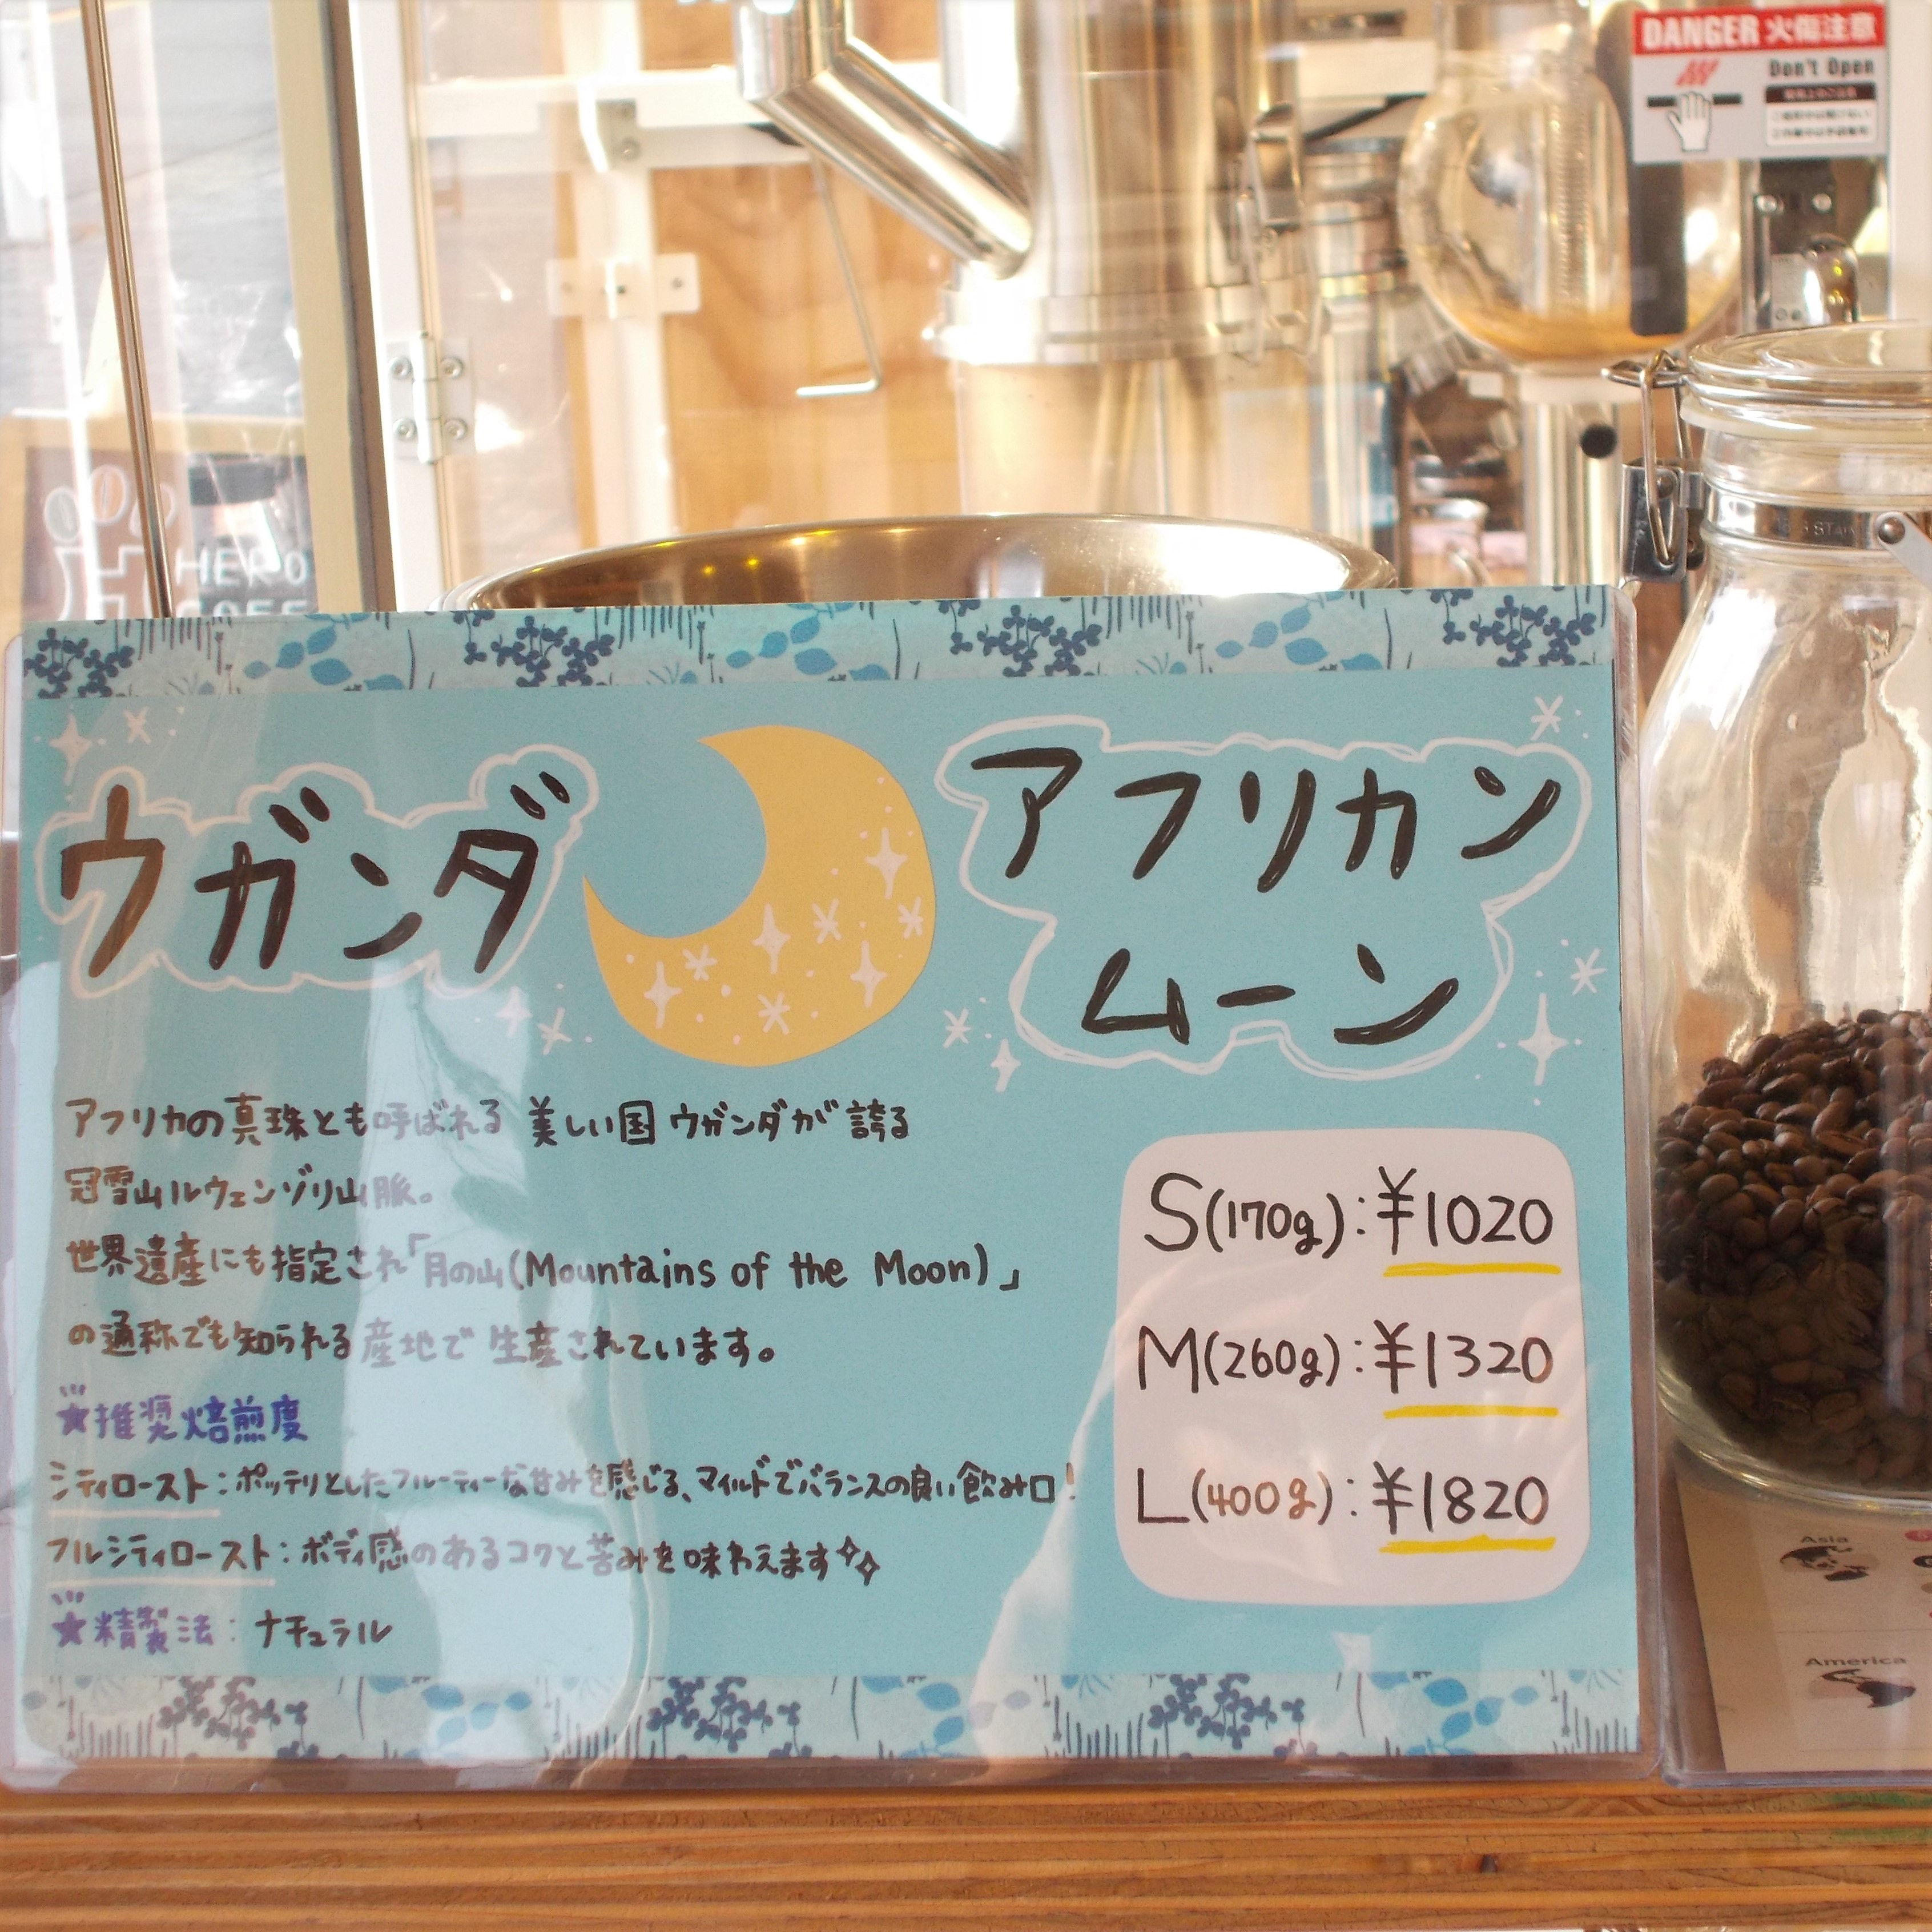 DANGER 火傷注意
Don't Open
HERO
ウガンダ
アフリカン
ムーン
アフリカの真珠とも呼ばれる 美しい国 ウガンダが誇る
冠雪山ルウェンゾリ山脈。
世界遺産にも指定され「月の山(Mountains of the Moon)」
の通称でも知られる産地で生産されています。
★推奨焙煎度
シティロースト:ポッテリとしたフルーティーな甘みを感じる、マイルドでバランスの良い飲み口!
フルシティロースト:ボディ感のあるコクと苦みを味わえます
★精製法:ナチュラル
S(170g):¥1020
M(260g):¥1320
L(400g):¥1820
Asia
America